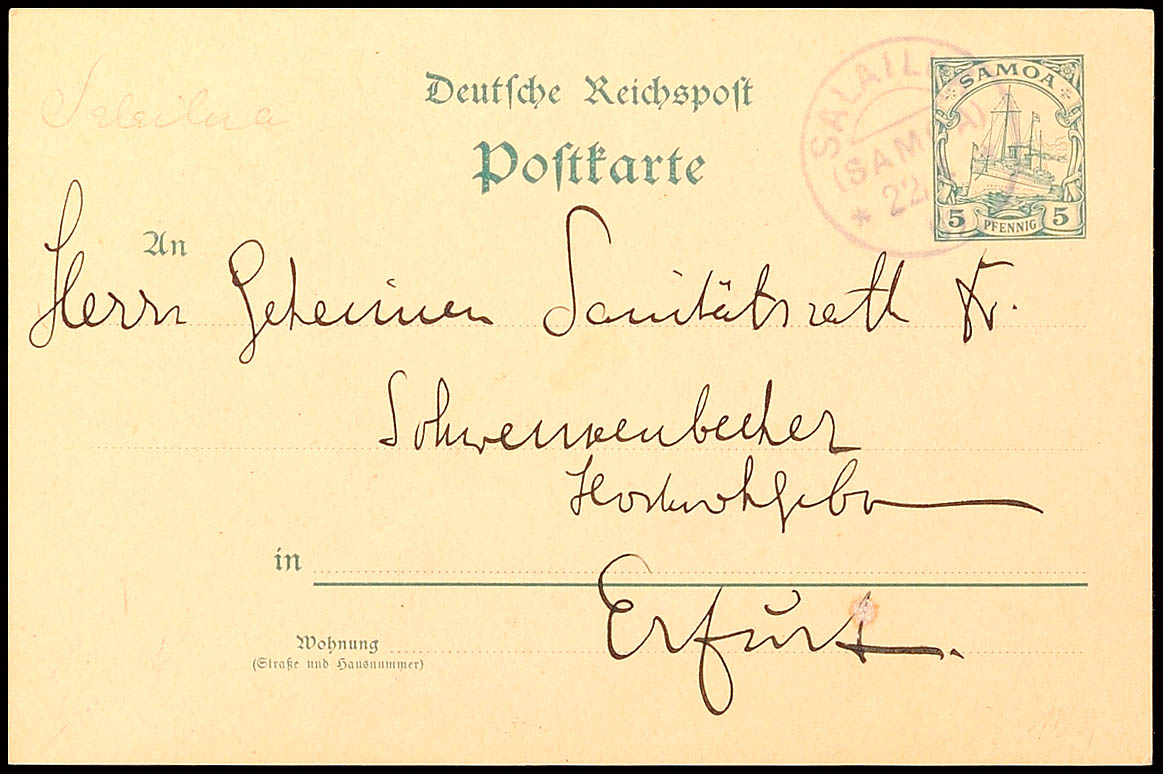 Salailua
Deutsche Reichspost
Postkarte
SALAILU
(SAMOA)
* 22.
SAMOA
5 PFENNIG 5
An
Herrn Geheimen Sanitätsrath Dr.
Schwenkenbecher
Hochwohlgebo
in
Erfurt.
Wohnung
(Straße und Hausnummer)